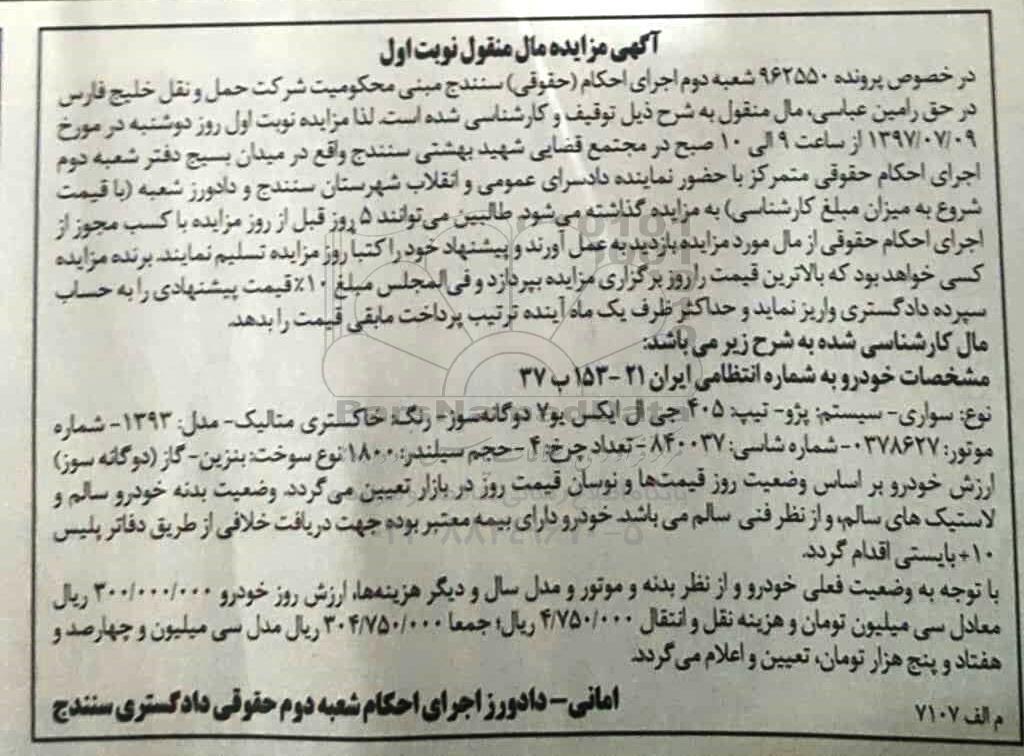 آگهی مزایده مال منقول نوبت اول
در خصوص پرونده ۹۶۲۵۵۰ شعبه دوم اجرای احکام (حقوقی) سنندج مبنی محکومیت شرکت حمل و نقل خلیج فارس
در حق رامین عباسی، مال منقول به شرح ذیل توقیف و کارشناسی شده است. لذا مزایده نوبت اول روز دوشنبه در مورخ
۱۳۹۷/۰۷/۰۹ از ساعت ۹ الی ۱۰ صبح در مجتمع قضایی شهید بهشتی سنندج واقع در میدان بسیج دفتر شعبه دوم
اجرای احکام حقوقی متمرکز با حضور نماینده دادسرای عمومی و انقلاب شهرستان سنندج و دادورز شعبه (با قیمت
شروع به میزان مبلغ کارشناسی) به مزایده گذاشته می‌شود. طالبین می‌توانند ۵ روز قبل از روز مزایده با کسب مجوز از
اجرای احکام حقوقی از مال مورد مزایده بازدید به عمل آورند و پیشنهاد خود را کتبا روز مزایده تسلیم نمایند. برنده مزایده
کسی خواهد بود که بالاترین قیمت را روز برگزاری مزایده بپردازد و فی‌المجلس مبلغ ۱۰٪ قیمت پیشنهادی را به حساب
سپرده دادگستری واریز نماید و حداکثر ظرف یک ماه آینده ترتیب پرداخت مابقی قیمت را بدهد.
مال کارشناسی شده به شرح زیر می باشد:
مشخصات خودرو به شماره انتظامی ایران ۲۱ -۱۵۳ ب ۳۷
نوع: سواری- سیستم: پژو- تیپ: ۴۰۵ جی ال ایکس یو۷ دوگانه‌سوز- رنگ: خاکستری متالیک- مدل: ۱۳۹۳- شماره
موتور: ۰۳۷۸۶۲۷- شماره شاسی: ۸۴۰۰۳۷ - تعداد چرخ: ۴ - حجم سیلندر: ۱۸۰۰ نوع سوخت: بنزین- گاز (دوگانه سوز)
ارزش خودرو بر اساس وضعیت روز قیمت‌ها و نوسان قیمت روز در بازار تعیین می گردد. وضعیت بدنه خودرو سالم و
لاستیک های سالم، و از نظر فنی سالم می باشد. خودرو دارای بیمه معتبر بوده جهت دریافت خلافی از طریق دفاتر پلیس
+۱۰ بایستی اقدام گردد.
با توجه به وضعیت فعلی خودرو و از نظر بدنه و موتور و مدل سال و دیگر هزینه‌ها، ارزش روز خودرو ۳۰۰/۰۰۰/۰۰۰ ریال
معادل سی میلیون تومان و هزینه نقل و انتقال ۴/۷۵۰/۰۰۰ ریال؛ جمعا ۳۰۴/۷۵۰/۰۰۰ ریال مدل سی میلیون و چهارصد و
هفتاد و پنج هزار تومان، تعیین و اعلام می گردد.
امانی- دادورز اجرای احکام شعبه دوم حقوقی دادگستری سنندج
م الف ۷۱۰۷